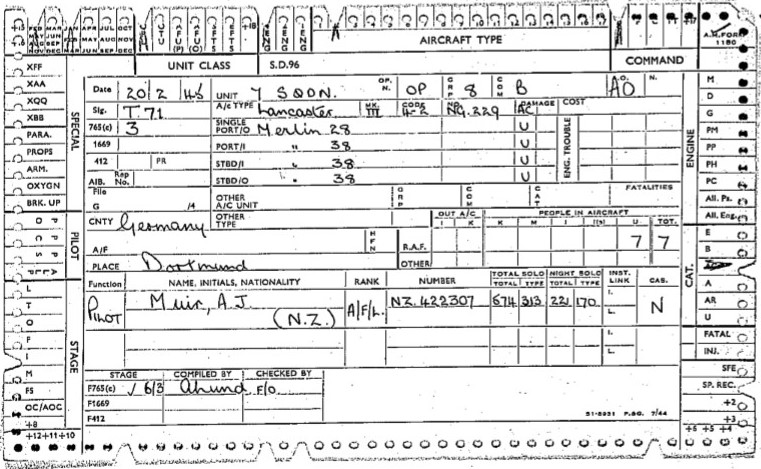 +15 FEB MAR JAN FEB MAR APR JUL OCT
+16 MAY JUN APR MAY AUG NOV
AUG SEP JUL
NOV DEC OCT MAR JUN SEP DEC
OTU AFU (P) AFU (O) FTS EFTS +18 ENG ENG ENG A A
AIRCRAFT TYPE
A.M.FORM 1180
UNIT CLASS S.D.96 COMMAND
XFF
XAA
XQQ
XBB
PARA.
PROPS
ARM.
OXYGN
BRK. UP
SPECIAL
Date 20/2/45 UNIT 7 SQDN. OP. N. OP GRP 8 COM B A.O. AO N.
Sig. T 71 A/c TYPE Lancaster MK. III CODE 4-2 NO. NG.229 DAMAGE AC COST
765(c) 3 SINGLE PORT/O Merlin 28 U
1669 PORT/I " 38 U
412 PR STBD/I " 38 U
AIB. Rep No. STBD/O " 38 U
ENG. TROUBLE
File G /4 OTHER A/C UNIT GRP COM CAT FATALITIES
CNTY Germany OTHER TYPE OUT A/C I K PEOPLE IN AIRCRAFT K M I I(s) U TOT.
A/F HFN R.A.F. 7 7
PLACE Dortmund OTHER
PILOT
Function NAME, INITIALS, NATIONALITY RANK NUMBER TOTAL SOLO TOTAL TYPE NIGHT SOLO TOTAL TYPE INST. LINK CAS.
PILOT Muir, A.J. (N.Z.) A/F/L. NZ. 422307 674 313 221 170 I. L. N
I.
L.
STAGE
STAGE COMPILED BY CHECKED BY
F765(c) √ 6/3 F/O
F1669
F412
51-8931 P.BG. 7/44
ENGINE
M
D
G
PM
PP
PH
PC
All. Ps.
All. Eng.
E
B
CAT.
A
AR
U
FATAL
INJ.
SFE
SP. REC.
+2
+3
+6 +5 +4
L
T
O
F
I
M
FS
OC/AOC
+8
+12 +11 +10